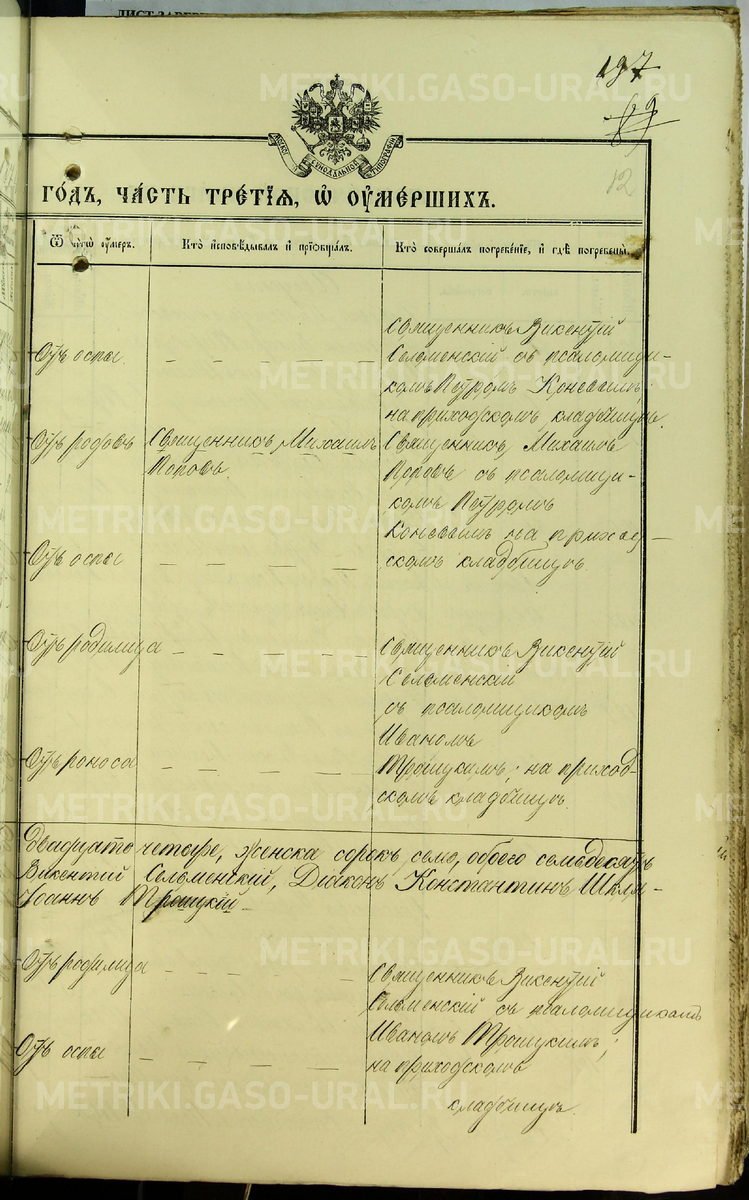 ЛИСТ ЗАВЕР
METRIKI.GASO-URAL.RU
197
69
12
СУНОДАЛЬНОЙ ТИПОГРАФІИ
ГОДЪ, ЧАСТЬ ТРЕТІЯ, Ѡ ОУМЕРШИХЪ.
Ѿ чегѡ оумеръ.
Кто исповѣдывалъ и пріобщалъ.
Кто совершалъ погребеніе, и гдѣ погребены.
Отъ оспы.
Священникъ Викентій
Сельменскій съ псаломщи-
комъ Петромъ Коневымъ,
на приходскомъ кладбищѣ.
Отъ родовъ
Священникъ Михаилъ
Поповъ.
Священникъ Михаилъ
Поповъ съ псаломщи-
комъ Петромъ
Коневымъ на приход-
скомъ кладбищѣ.
Отъ оспы
Отъ родимца
Священникъ Викентій
Сельменскій
съ псаломщикомъ
Иваномъ
Троицкимъ; на приход-
скомъ кладбищѣ.
Отъ поноса
METRIKI.GASO-URAL.RU
двадцать четыре, женска сорокъ семь, обоего семьдесятъ
Викентий Сельменский, Діаконъ Константинъ
Іоаннъ Троицкій.
Отъ родимца
Священникъ Викентій
Сельменскій съ псаломщикомъ
Иваномъ Троицкимъ;
на приходскомъ
кладбищѣ.
Отъ оспы
METRIKI.GASO-URAL.RU